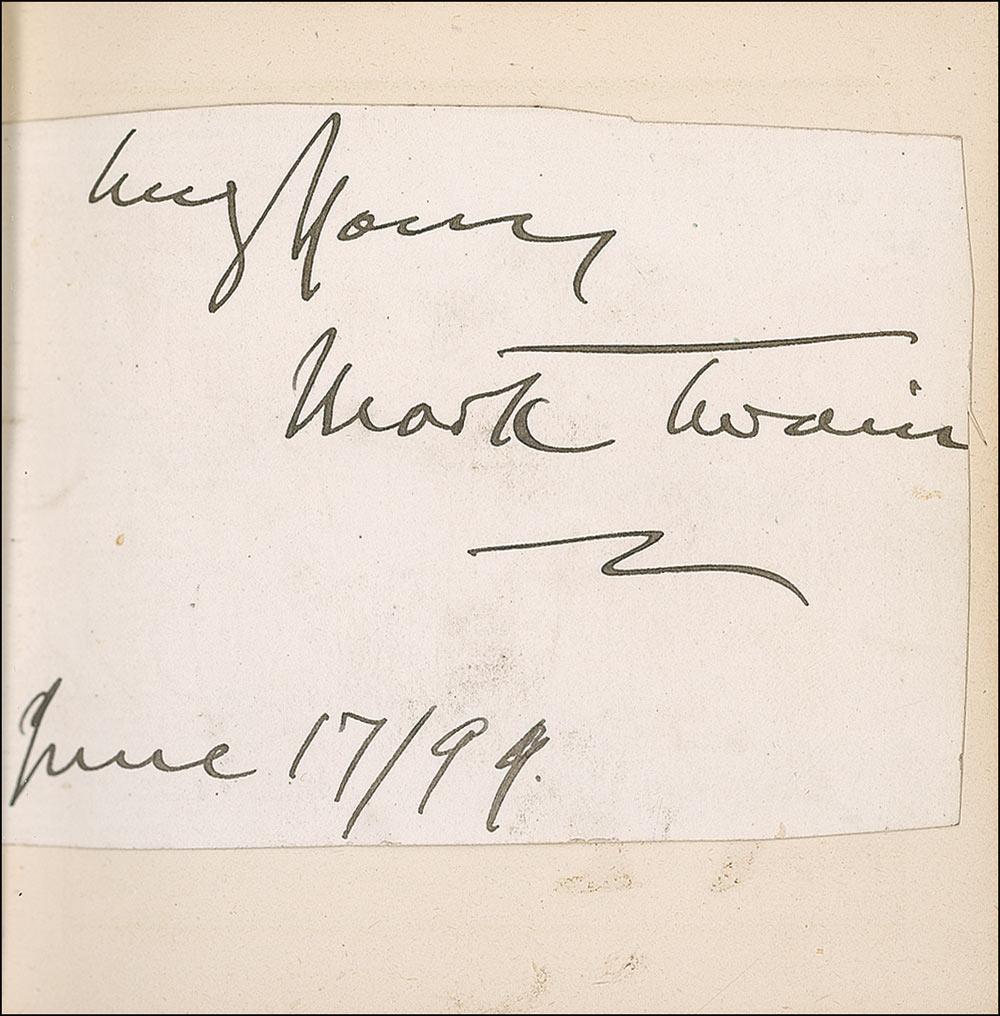 Truly Yours
Mark Twain
June 17/99.